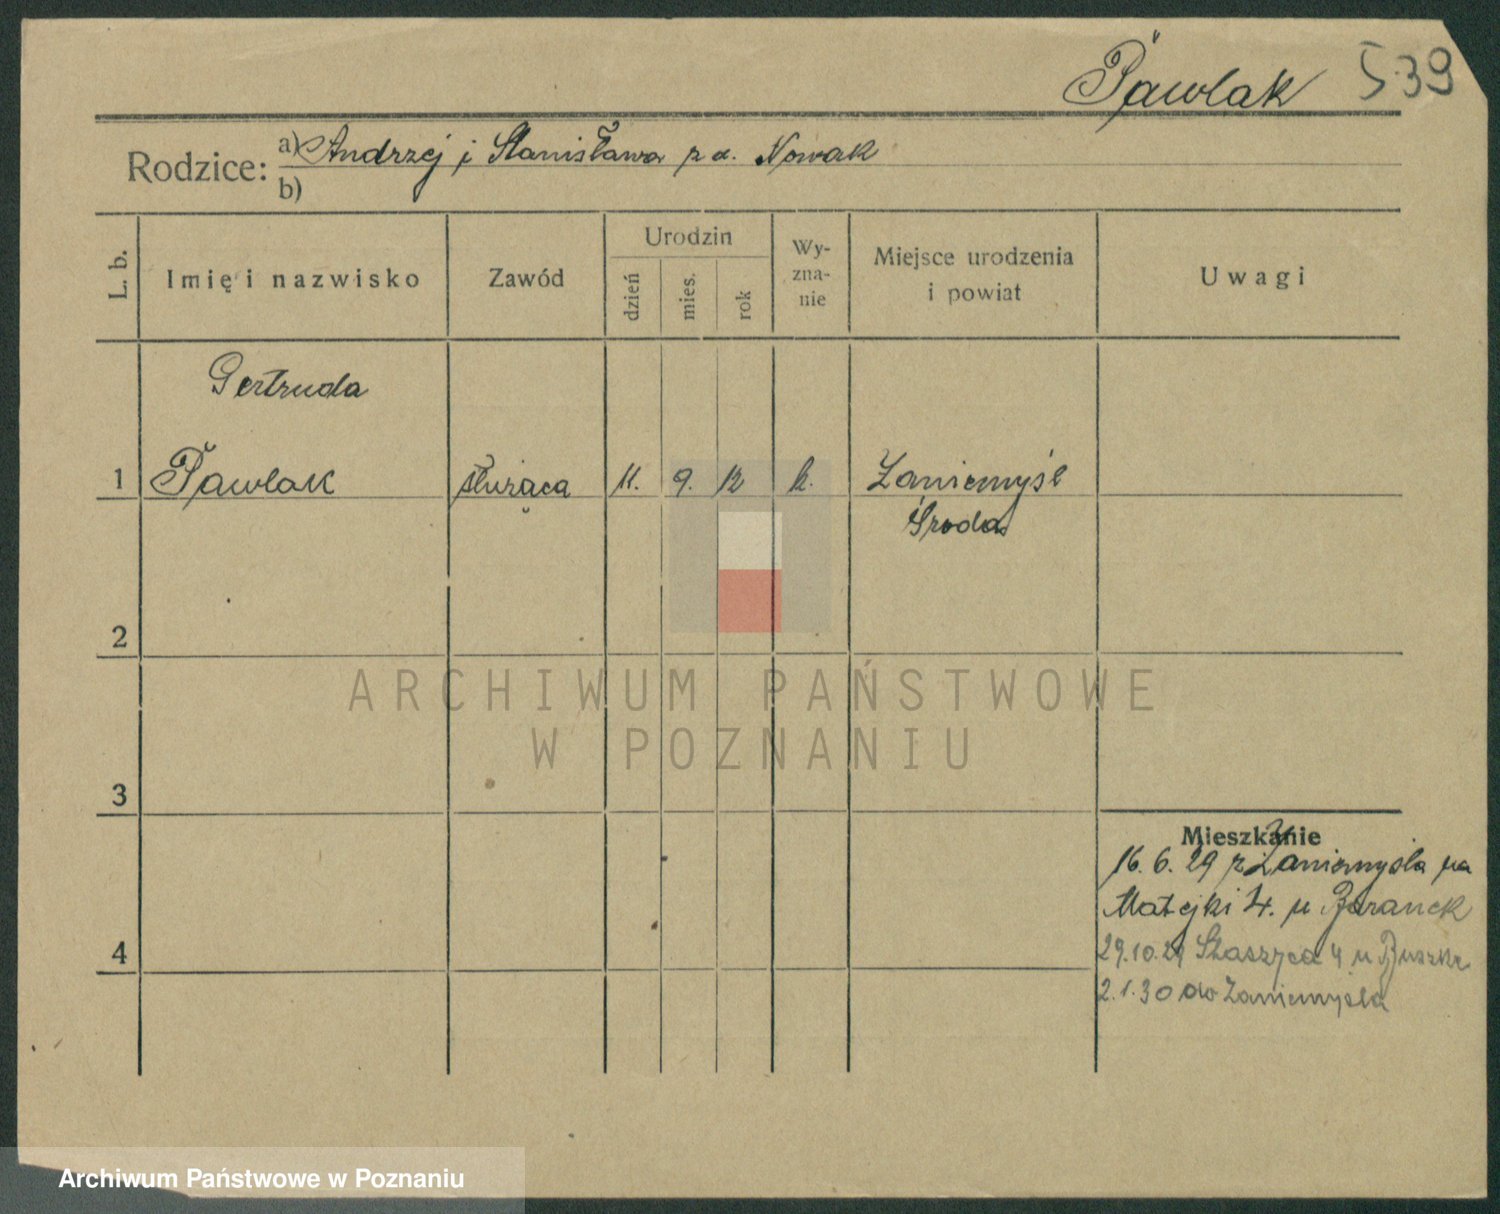 Pawlak 539
Rodzice: a) Andrzej i Stanisława z d. Nowak
b)
L. b.
Imię i nazwisko
Zawód
Urodzin
dzień
mies.
rok
Wy-
zna-
nie
Miejsce urodzenia
i powiat
Uwagi
Gertruda
1 Pawlak służąca 11. 9. 12 k. Zaniemyśl
Środa
2
ARCHIWUM PAŃSTWOWE
W POZNANIU
3
Mieszkanie
16. 6. 29 z Zaniemyśla na
Matejki 4. u Baranek
4
29.10.29 Staszyca 4 u
2.1.30 do Zaniemyśla
Archiwum Państwowe w Poznaniu